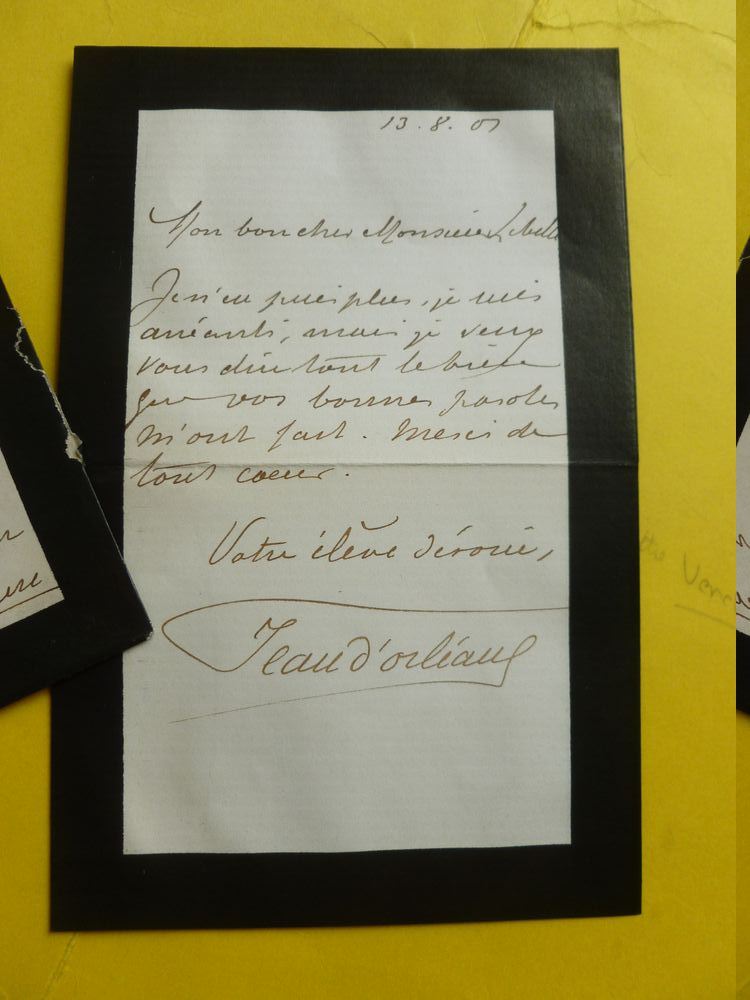 13.8.01
Mon bon cher Monsieur Lebelle
Je n'en puis plus, je suis
anéanti, mais je veux
vous dire tout le bien
que vos bonnes paroles
m'ont fait. Merci de
tout coeur.
Votre élève dévoué,
Jean d'orléans